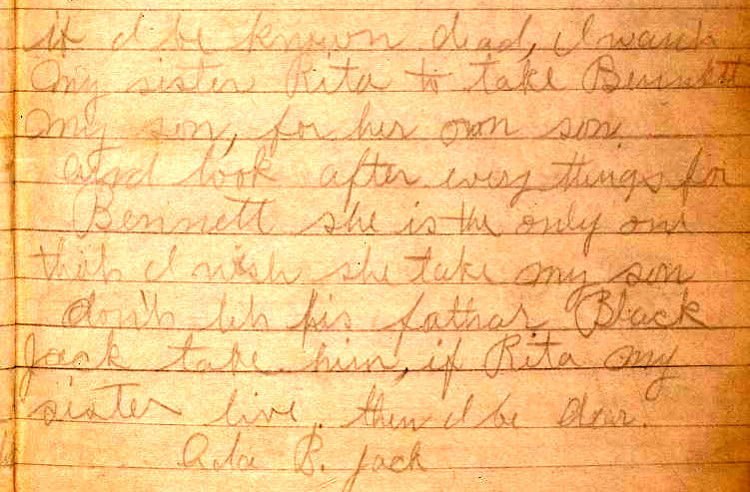 if I be known dead, I want
my sister Rita to take Bennett
my son, for her own son
and look after every things for
Bennett she is the only one
that I wish she take my son
don't let his father Black
Jack take him, if Rita my
sister live. then I be dear.
Ada B. Jack